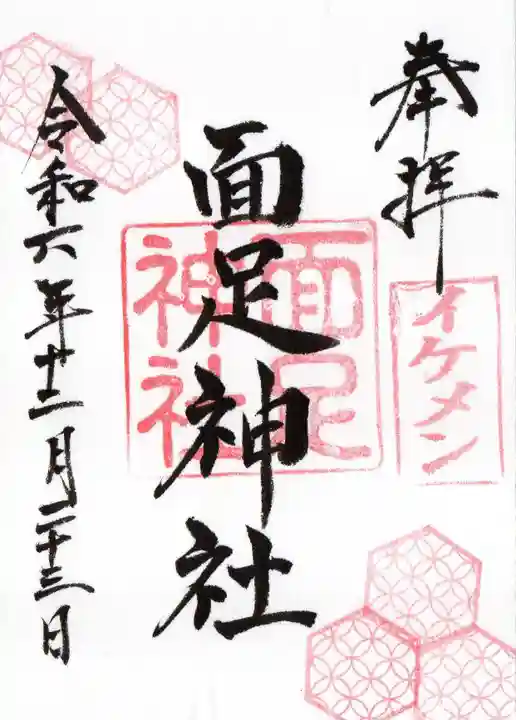 奉拝
イケメン
面足神社
面足
神社
令和六年十二月二十三日